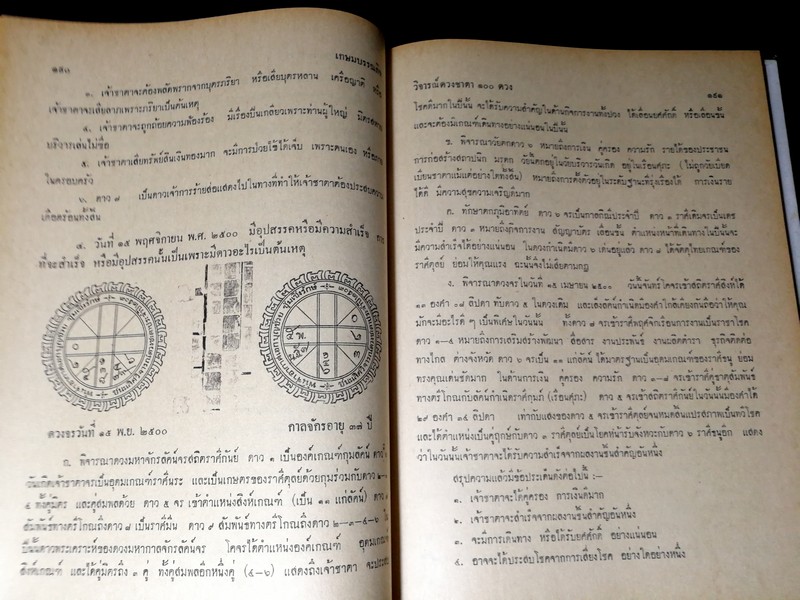 ๑๘๐
เกษมบรรณกิจ
๓. เจ้าชาตาจะต้องพลัดพรากจากบุตรภริยา หรือเสียบุตรหลาน เครือญาติ หรือ
เจ้าชาตาจะเสียลาภเพราะภริยาเป็นต้นเหตุ
๔. เจ้าชาตาจะถูกถ้อยความฟ้องร้อง มีเรื่องปีนเกลียวเพราะท่านผู้ใหญ่
บริวารเล่นไม่ซื่อ
๕. เจ้าชาตาเสียทรัพย์สินเงินทองมาก จะมีการป่วยไข้ได้เจ็บ เพราะตนเอง หรือ
ในครอบครัว
๖. ดาว ๗ เป็นดาวเจ้าการร้ายส่อแสดงไปในทางที่ทำให้เจ้าชาตาต้องประสบความ
เดือดร้อนทั้งสิ้น
๔. วันที่ ๑๕ พฤศจิกายน พ.ศ. ๒๕๐๐ มีอุปสรรคหรือมีความสำเร็จ การ
ที่จะสำเร็จ หรือมีอุปสรรคนั้นเป็นเพราะมีดาวอะไรเป็นต้นเหตุ
ดวงจรวันที่ ๑๕ พ.ย. ๒๕๐๐
กาลจักรอายุ ๓๗ ปี
ก. พิจารณาดวงมหาจักรลัคน์จรสถิตราศีกันย์ ดาว ๑ เป็นองค์เกณฑ์กุมลัคน์ ดาวที่
วันเกิดเจ้าชาตาจรเป็นอุดมเกณฑ์ราศีนระ และเป็นเกษตรของราศีตุลย์ด้วยกุมร่วมกับดาว
๔ ทั้งคู่มิตร และคู่สมพลด้วย ดาว ๕ จร เข้าตำแหน่งสิงห์เกณฑ์ (เป็น ๑๑ แก่ลัคน์) ดาว
สัมพันธ์ทางตรีโกณถึงดาว ๗ เป็นราศีมีน ดาว ๙ สัมพันธ์ทางตรีโกณถึงดาว ๒–๓–๔–๖ ใน
ปีนั้นดาวพระเคราะห์ของดวงมหากาลจักรลัคน์จร โคจรได้ตำแหน่งองค์เกณฑ์ อุดมเกณฑ์
สิงห์เกณฑ์ และได้คู่มิตรถึง ๓ คู่ ทั้งคู่สมพลอีกหนึ่งคู่ (๔–๖) แสดงถึงเจ้าชาตา จะประสบ
วิจารณ์ดวงชาตา ๑๐๐ ดวง
๑๘๑
โชคดีมากในปีนั้น จะได้รับความสำคัญในด้านกิจการงานทั้งปวง ได้เลื่อนยศศักดิ์ หรือเลื่อนขั้น
และจะต้องมีเกณฑ์เดินทางอย่างแน่นอนในปีนั้น
ข. พิจารณาวัยตกดาว ๖ หมายถึงการเงิน คู่ครอง ความรัก รายได้ของประชาชน
การก่อสร้างสถาปนิก มรดก วัยนี้ตกอยู่ในวัยบริวารวันเกิด อยู่ในเรือนศุภะ (ไม่ถูกวัยเบียด
เบียนชาตาแม้แต่อย่างใดทั้งสิ้น) หมายถึงการตั้งตัวอยู่ในระดับฐานะที่รุ่งเรืองได้ การเงินราย
ได้ดี มีความสุขความเจริญดีมาก
ค. ทักษาตกภูมิอาทิตย์ ดาว ๖ จรเป็นกาลกิณีประจำปี ดาว ๑ ราศีเดิมจรเป็นเดช
ประจำปี ดาว ๑ หมายถึงกิจการงาน สัญญาบัตร เลื่อนขั้น ตำแหน่งหน้าที่เดินทางในปีนั้นจะ
มีความสำเร็จได้อย่างแน่นอน ในดวงกำเนิดมีดาว ๖ เด่นอยู่แล้ว ดาว ๗ ได้จัตุตถเกณฑ์ของ
ราศีตุลย์ ย่อมให้คุณแรง ฉะนั้นจึงไม่เสียตามกฎ
ง. พิจารณาดวงจรในวันที่ ๑๕ เมษายน ๒๕๐๐ วันนี้จันทร์โคจรเข้าสถิตราศีสิงห์ได้
๑๓ องศา ๑๗ ลิปดา ทับดาว ๕ ในดวงเดิม และเล็งลัคน์กำเนิดมีองศาใกล้เคียงกันถือว่าให้คุณ
มักจะมีอะไรดี ๆ เป็นพิเศษในวันนั้น ทั้งดาว ๑ จรเข้าราศีพฤศจิกเรือนการงานเป็นราชาโชค
ดาว ๓–๔ หมายถึงการเสริมสร้างพัฒนา สื่อสาร งานประพันธ์ งานผลิตตำรา ธุรกิจติดต่อ
ทางไกล ต่างจังหวัด ดาว ๖ จรเป็น ๑๑ แก่ลัคน์ ได้มาตรฐานเป็นอุดมเกณฑ์ของราศีธนู ย่อม
ทรงคุณเด่นชัดมาก ในด้านการเงิน คู่ครอง ความรัก ดาว ๑–๗ จรเข้าราศีคู่ธาตุสัมพันธ์
ทางตรีโกณกับลัคน์กำเนิดราศีกุมภ์ (เรือนศุภะ) ดาว ๕ จรเข้าสถิตราศีกันย์ในวันนั้นมีองศาได้
๒๙ องศา ๓๖ ลิปดา เท่ากับแสงของดาว ๕ จรเข้าราศีตุลย์จนหมดสิ้นแปรสภาพเป็นทวิโชค
และได้ตำแหน่งเป็นคู่ฤกษ์กับดาว ๓ ราศีตุลย์เป็นโยคหน้ารับจังหวะกับดาว ๖ ราศีธนูอีก แสดง
ว่าในวันนั้นเจ้าชาตาจะได้รับความสำเร็จจากผลงานชิ้นสำคัญอันหนึ่ง
สรุปความแล้วมีข้อประเด็นดังต่อไปนี้ :–
๑. เจ้าชาตาจะได้คู่ครอง การเงินดีมาก
๒. เจ้าชาตาจะสำเร็จจากผลงานชิ้นสำคัญอันหนึ่ง
๓. จะมีการเดินทาง หรือได้รับยศศักดิ์ อย่างแน่นอน
๔. อาจจะได้ประสบโชคจากการเสี่ยงโชค อย่างใดอย่างหนึ่ง